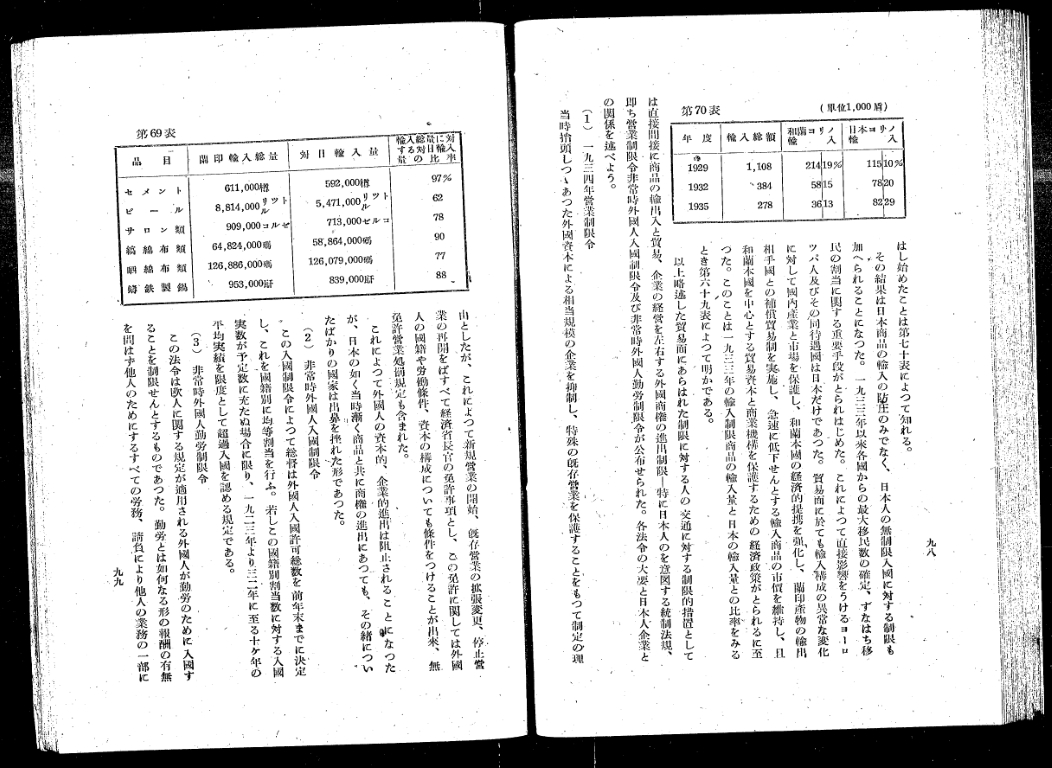 九八
はし始めたことは第七十表によつて知れる。
その結果は日本商品の輸入の防圧のみでなく、日本人の無制限入國に対する制限も
加へられることになつた。一九三三年以來各國からの最大移民数の確定、すなはち移
民の割当に関する重要手段がとられはじめた。これによつて直接影響をうけるヨーロ
ツパ人及びその同待遇國は日本だけであつた。貿易面に於ても輸入構成の異常な変化
に対して國内産業と市場を保護し、和蘭本國の経済的提携を强化し、蘭印産物の輸出
相手國との補償貿易制を実施し、急速に低下せんとする輸入商品の市價を維持し、且
和蘭本國を中心とする貿易資本と商業機構を保護するための経済政策がとられるに至
つた。このことは一九三三年の輸入制限商品の輸入量と日本の輸入量との比率をみる
とき第六十九表によつて明かである。
第70表
(單位1,000盾)
年度 輸入総額 和蘭ヨリノ輸入 日本ヨリノ輸入
1929 1,108 214 19% 115 10%
1932 384 58 15 78 20
1935 278 36 13 82 29
以上略述した貿易面にあらはれた制限に対する人の交通に対する制限的措置として
は直接間接に商品の輸出入と貿易、企業の経営を左右する外國商権の進出制限―特に日本人のを意図する統制法規、
即ち営業制限令非常時外國人入國制限令及び非常時外國人勤労制限令が公布せられた。各法令の大要と日本人企業と
の関係を述べよう。
(1) 一九三四年営業制限令
当時抬頭しつゝあつた外國資本による相当規模の企業を抑制し、特殊の旣存営業を保護することをもつて制定の理
第69表
品目 蘭印輸入総量 対日輸入量 輸入総量に対する対日輸入量の比率
セメント 611,000樽 592,000樽 97%
ビール 8,814,000リツトル 5,471,000リツトル 62
サロン類 909,000コルゼ 713,000ゼルコ 78
縞綿布類 64,824,000碼 58,864,000碼 90
晒綿布類 126,886,000碼 126,079,000碼 77
鑄鉄製鍋 953,000瓩 839,000瓩 88
由としたが、これによつて新規営業の開始、旣存営業の拡張変更、停止営
業の再開をばすべて経済省長官の免許事項とし、この免許に関しては外國
人の國籍や労働條件、資本の構成についても條件をつけることが出來、無
免許営業処罰規定も含まれた。
これによつて外國人の資本的、企業的進出は阻止されることになつた
が、日本の如く当時漸く商品と共に商権の進出にあつても、その緖につい
たばかりの國家は出鼻を挫れた形であつた。
(2) 非常時外國人入國制限令
この入國制限令によつて総督は外國人入國許可総数を前年末までに決定
し、これを國籍別に均等割当を行ふ。若しこの國籍別割当数に対する入國
実数が予定数に充たぬ場合に限り、一九二三年より三二年に至る十ケ年の
平均実績を限度として超過入國を認める規定である。
(3) 非常時外國人勤労制限令
この法令は欧人に関する規定が適用される外國人が勤労のために入國す
ることを制限せんとするものであつた。勤労とは如何なる形の報酬の有無
を問はず他人のためにするすべての労務、請負により他人の業務の一部に
九九